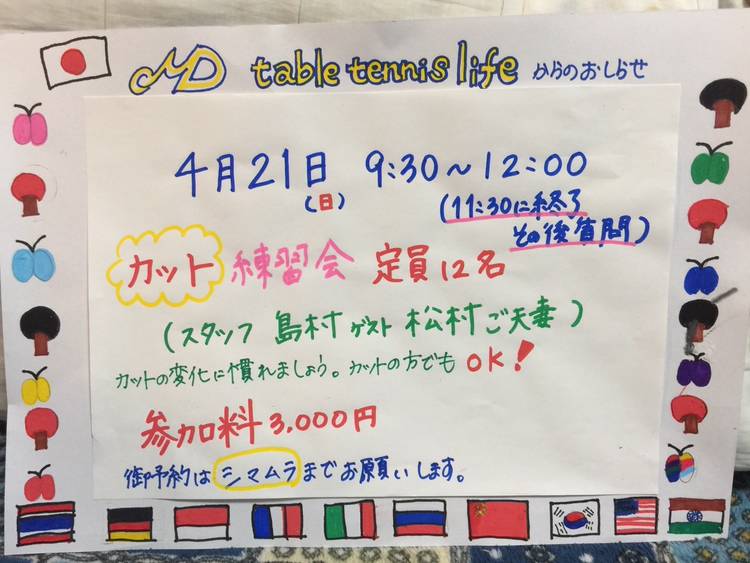 MD table tennis life からのおしらせ
4月21日 9:30～12:00
(日) (11:30に終了
その後質問)
カット 練習会 定員12名
(スタッフ 島村 ゲスト 松村ご夫妻)
カットの変化に慣れましょう。カットの方でもOK!
参加料3,000円
御予約はシマムラまでお願いします。